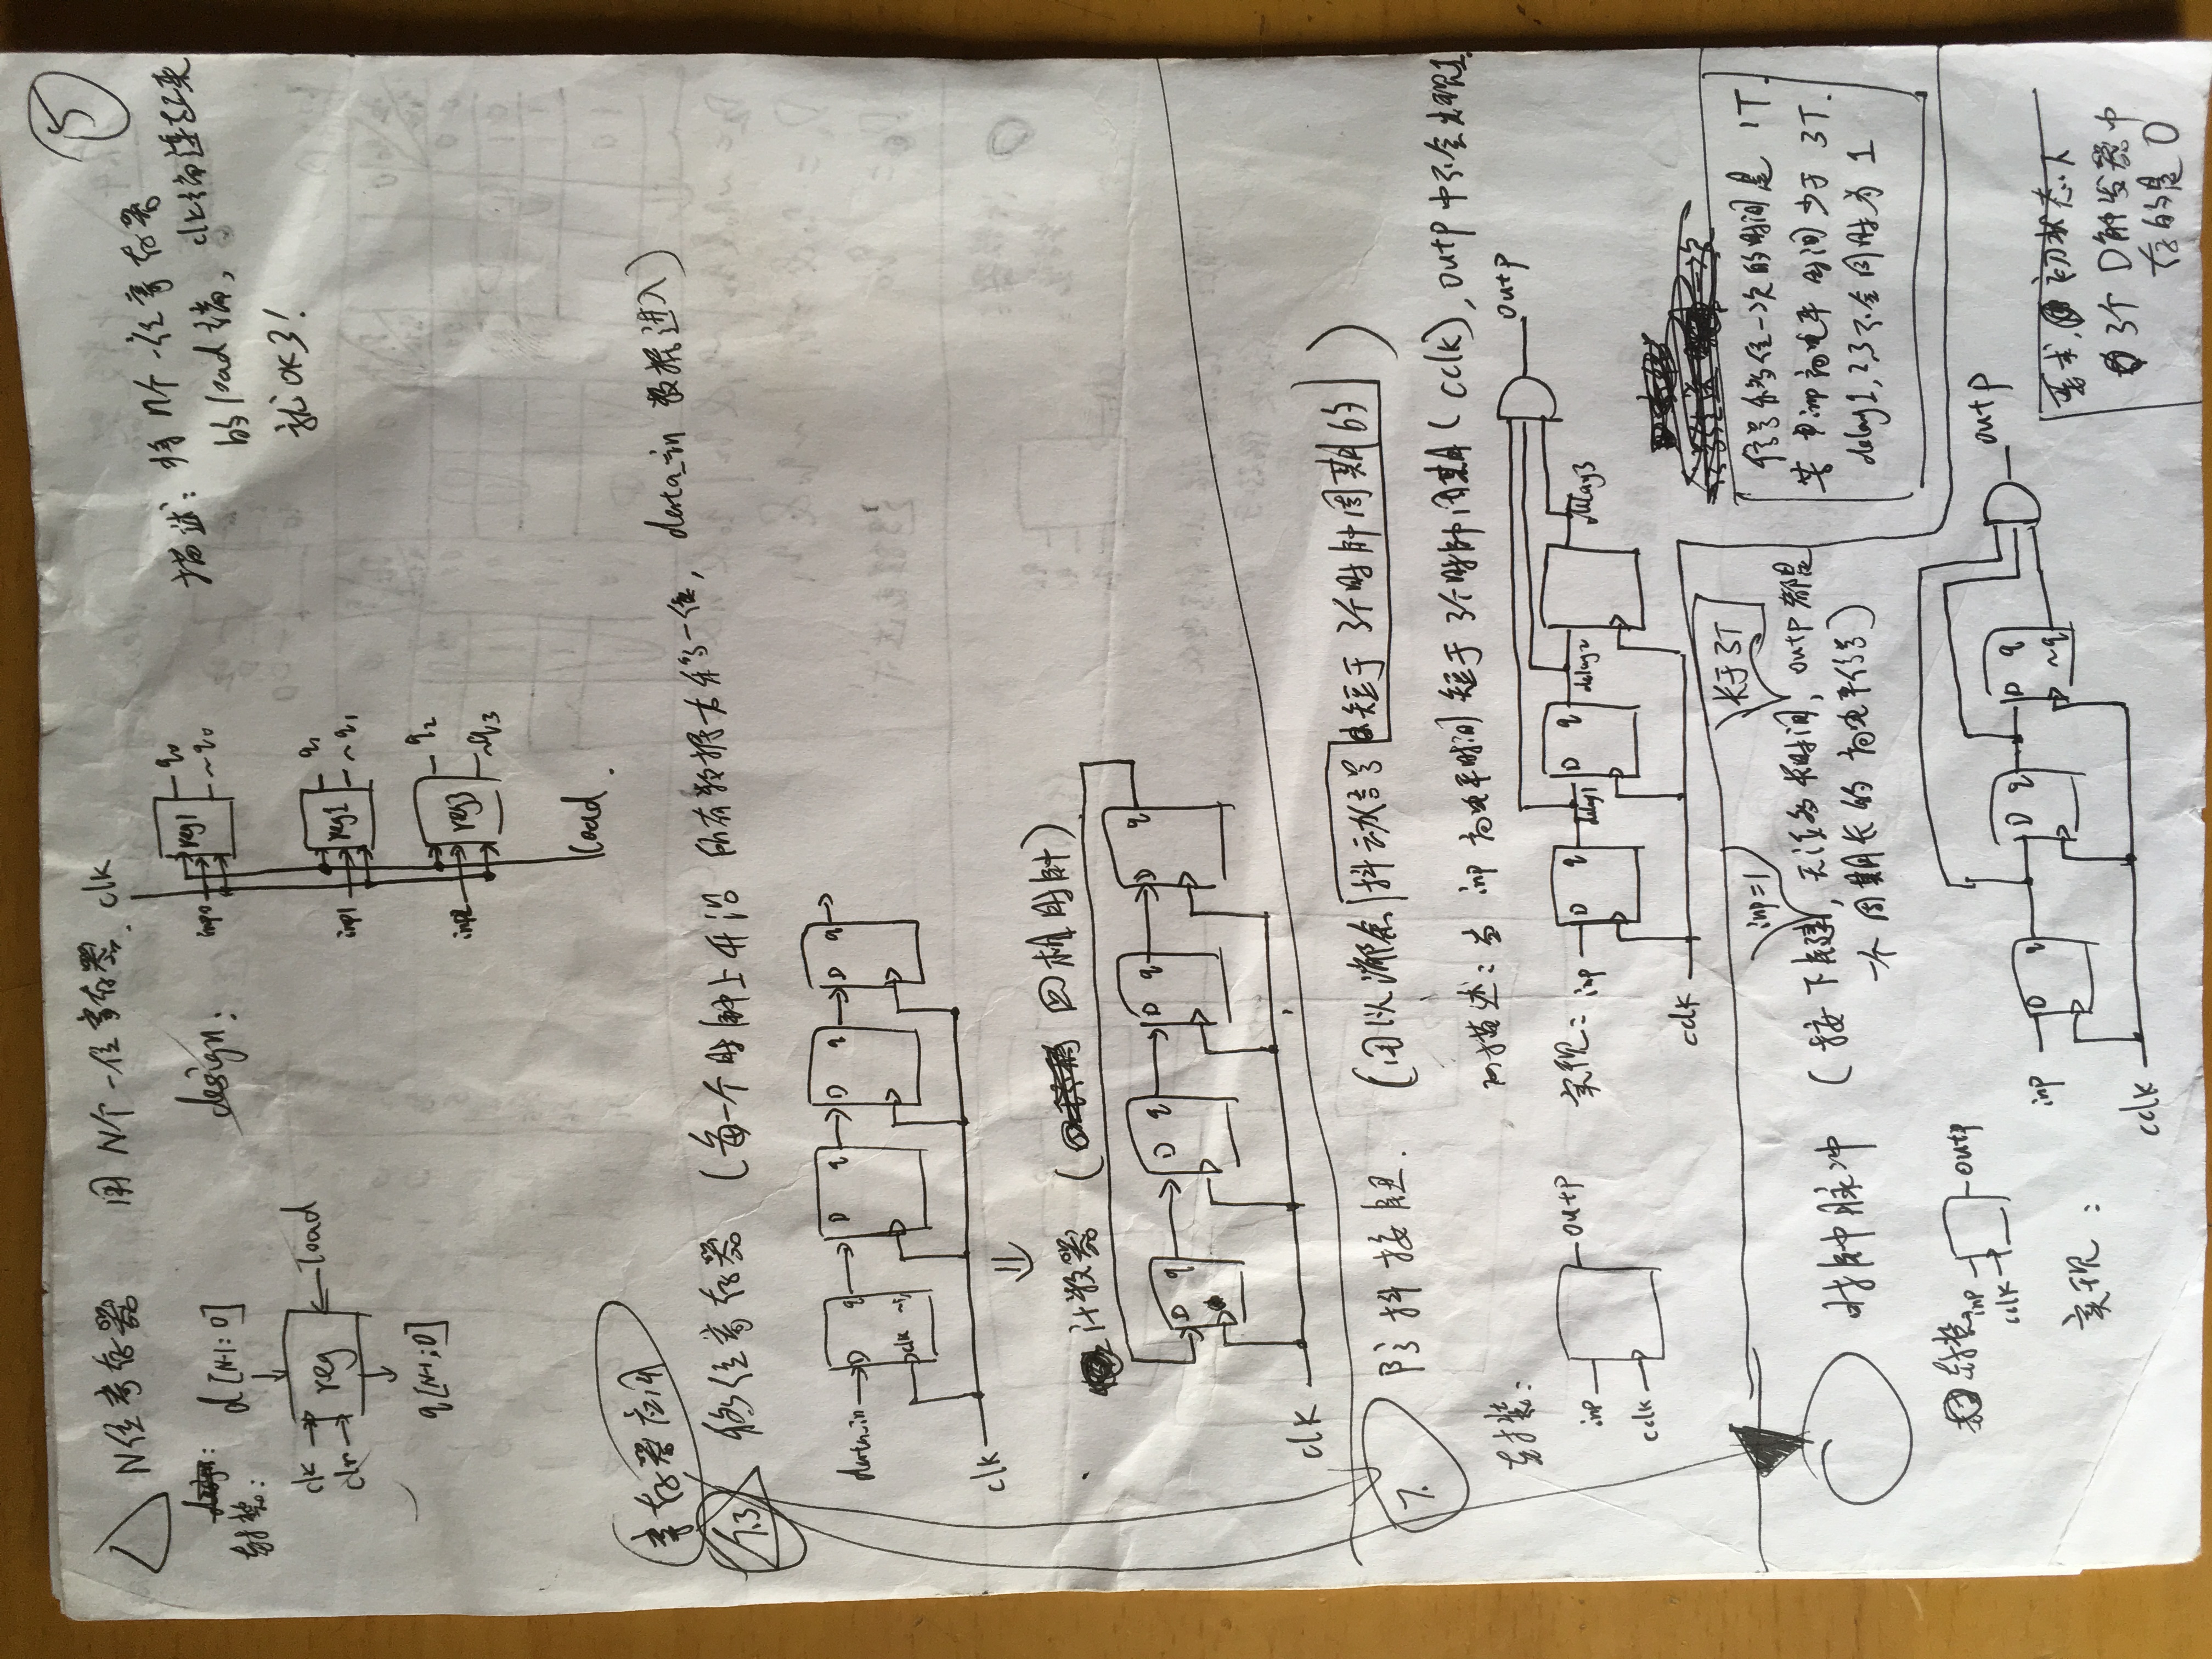 ⑤
N位寄存器 用N个一位寄存器. clk
design:
封装:
d[N-1:0]
clk
clr
reg
load
q[N-1:0]
design:
inp0 reg1 q0
~q0
inp1 reg2 q1
~q1
inp2 reg3 q2
~q3
load
描述: 将n个一位寄存器
的load端, clk端连起来
就OK了!
寄存器应用
移位寄存器 (每一个时钟上升沿 所有数据右移一位, data_in 数据进入)
data_in D q D q D q D q
clk ~q
clk
计数器 ( 四相时钟)
D q D q D q D q
clk
7. 防抖按钮. (用以滤除 抖动信号 短于3个时钟周期的)
描述: 当 inp 高电平时间 短于3个时钟周期(cclk), outp中不会出现1.
封装:
inp
cclk
outp
实现: inp D q delay1 D q delay2 delay3
outp
cclk
信号移位一次的时间是 1T.
若inp高电平时间少于 3T.
delay1,2,3不会同时为 1
inp=1
长于3T
时钟脉冲 (按下按键, 无论多长时间, outp都是
一个周期长的高电平信号)
封装
inp
cclk
outp
实现:
inp D q D q D q
~q
outp
cclk
要求, 初状态下
3个 D触发器中
存的是 0